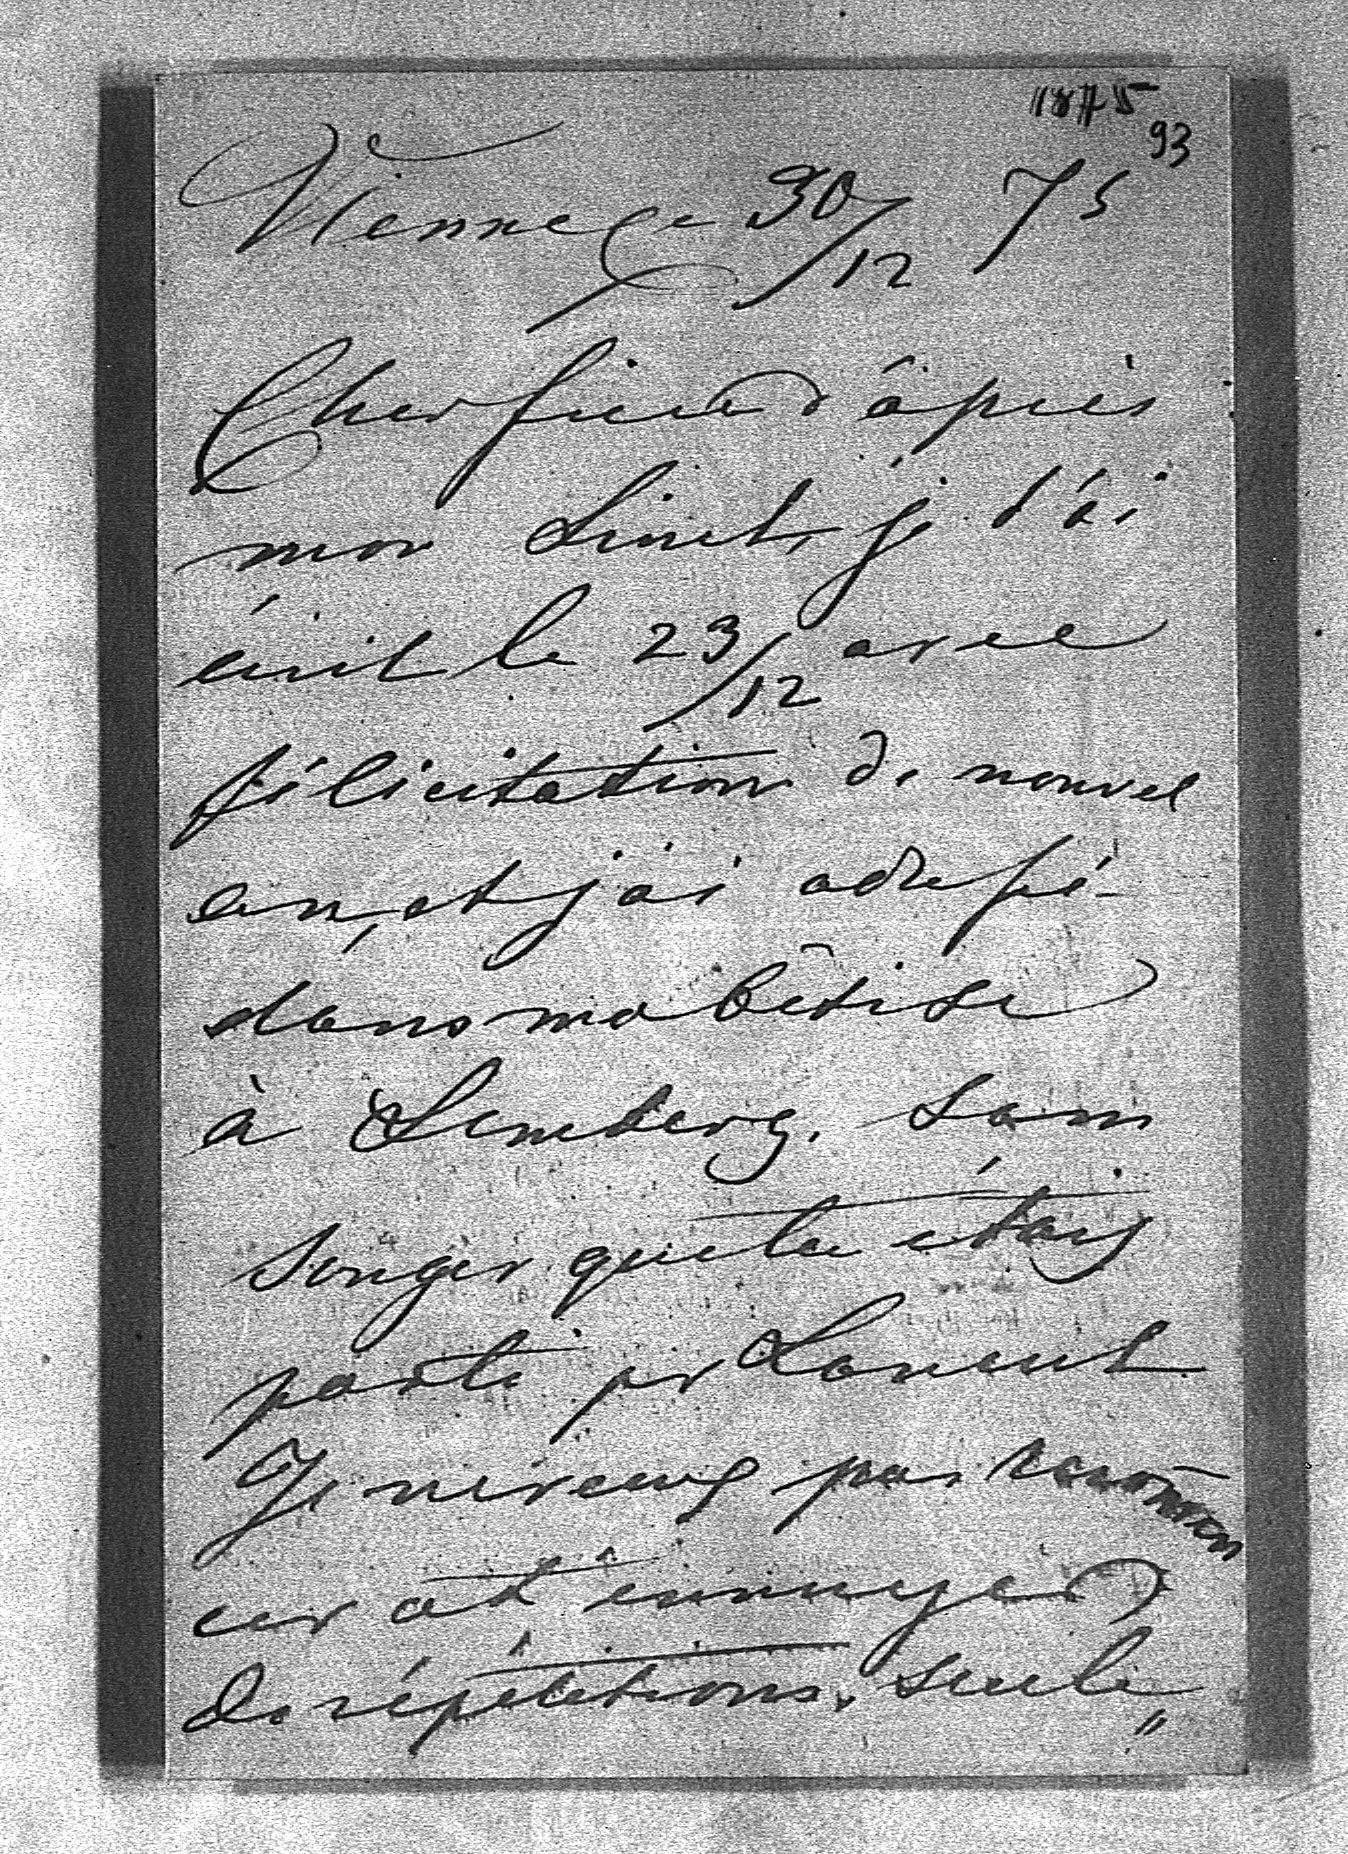 1875
93
Vienne ce 30/12 75
Cher frère d'après
mon Livret, je t'ai
écrit le 23/12 avec
félicitation de nouvel
an, et j'ai adressé
dans ma bêtise
à Lemberg, sans
songer que tu étais
parti pr Lancut
Je ne veux pas recommen
cer et ennuyer
de répétitions, seule"